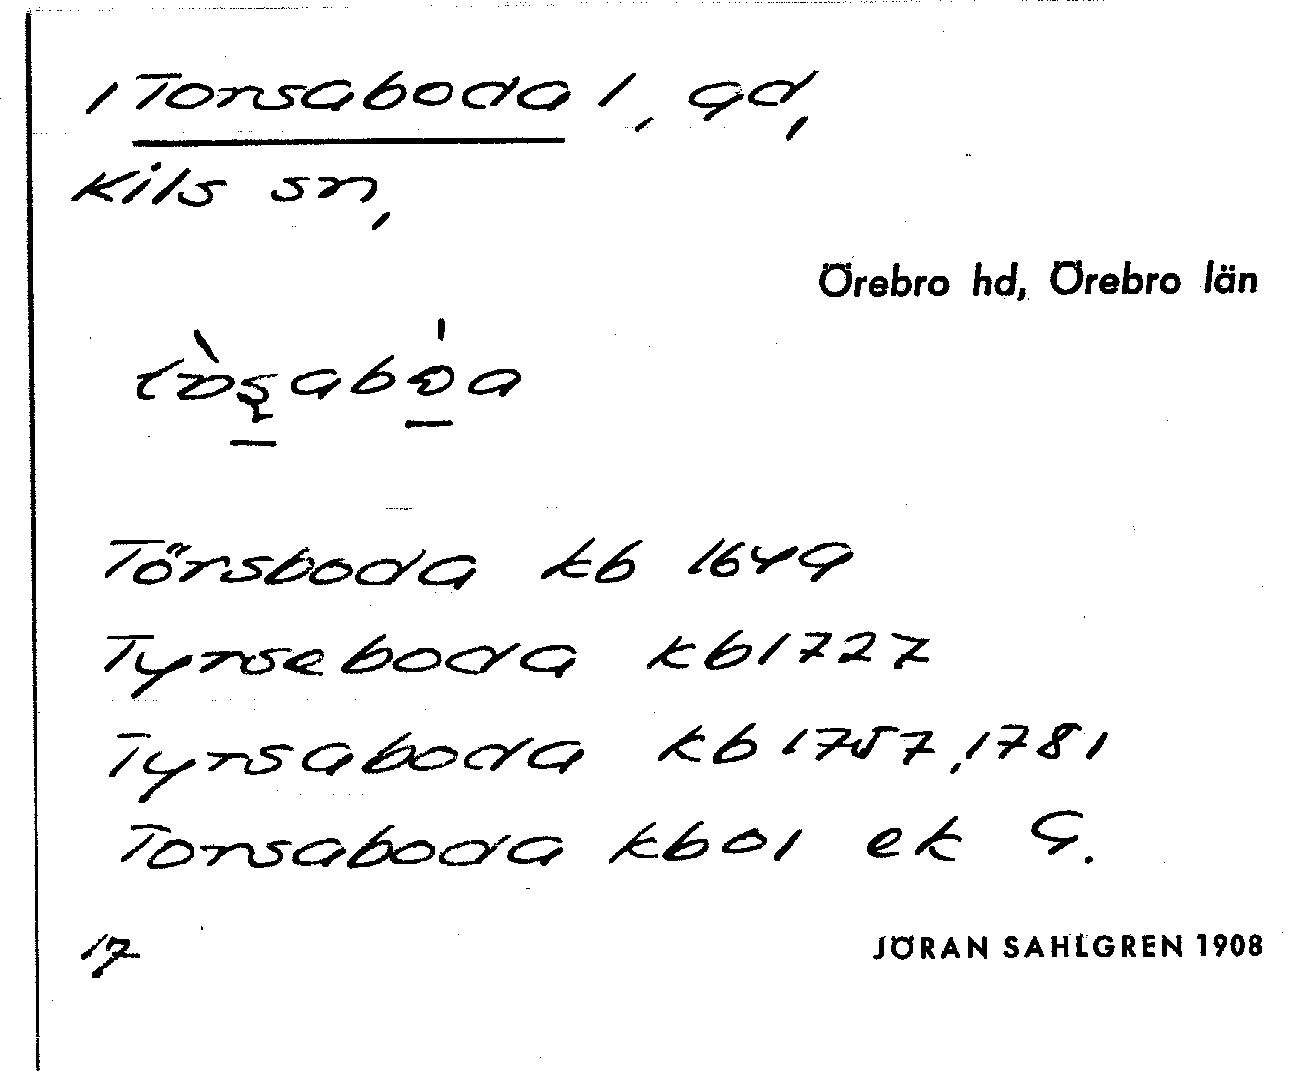 /Torsaboda/, gd,
Kils sn,
Örebro hd, Örebro län
Törsboda kb 1649
Tyrseboda kb 1727
Tyrsaboda kb 1757, 1781
Torsaboda kb 01 ek G.
17
JÖRAN SAHLGREN 1908